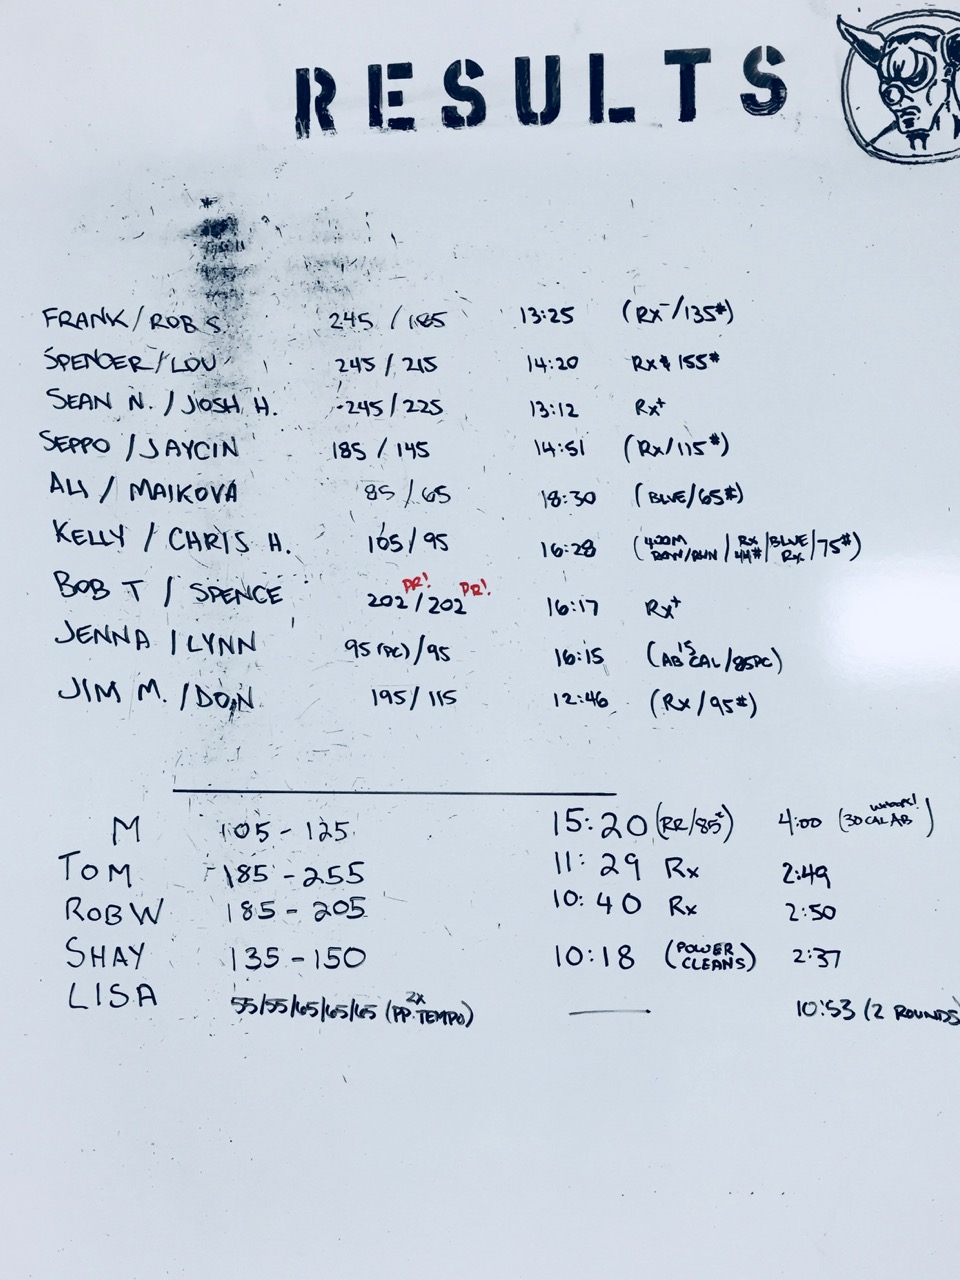 RESULTS
FRANK/ROB S. 245 / 185 13:25 (Rx-/135#)
SPENCER/LOU 245 / 215 14:20 Rx & 155#
SEAN N. / JOSH H. 245/225 13:12 Rx+
SEPPO / JAYCIN 185 / 145 14:51 (Rx/115#)
ALI / MAIKOVÁ 85 / 65 18:30 (BLUE/65#)
KELLY / CHRIS H. 105/95 16:28 (400M ROW/RUN / Rx 44# / BLUE Rx / 75#)
BOB T / SPENCE 202 PR! / 202 PR! 16:17 Rx+
JENNA / LYNN 95 (PC) / 95 16:15 (AB 15 CAL/85PC)
JIM M. / DON 195/ 115 12:46 (Rx/95#)
M 105 - 125 15:20 (RR/85#) 4:00 (30 CAL AB WHOOPS!)
TOM 185 - 255 11:29 Rx 2:49
ROB W 185 - 205 10:40 Rx 2:50
SHAY 135 - 150 10:18 (POWER CLEANS) 2:37
LISA 55/55/65/65/65 (PP. 2x TEMPO) — 10:53 (2 ROUNDS